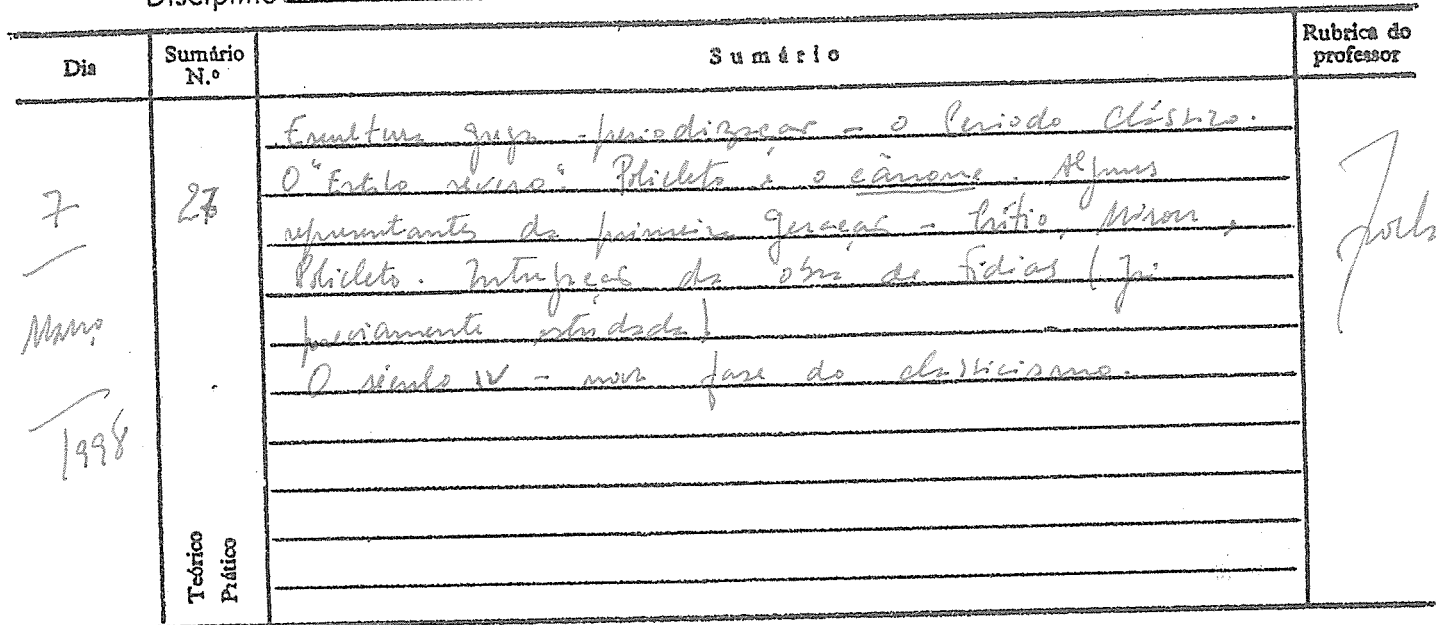 Disciplina
Dia
Sumário N.º
Sumário
Rubrica do professor
7
Março
1998
27
Escultura grega - periodização - o Período Clássico.
O "Estilo severo". Policleto e o cânone. Alguns
representantes da primeira geração - Crítio, Míron,
Policleto. Integração da obra de Fídias (já
previamente estudada)
O século IV - nova fase do classicismo.
Teórico
Prático